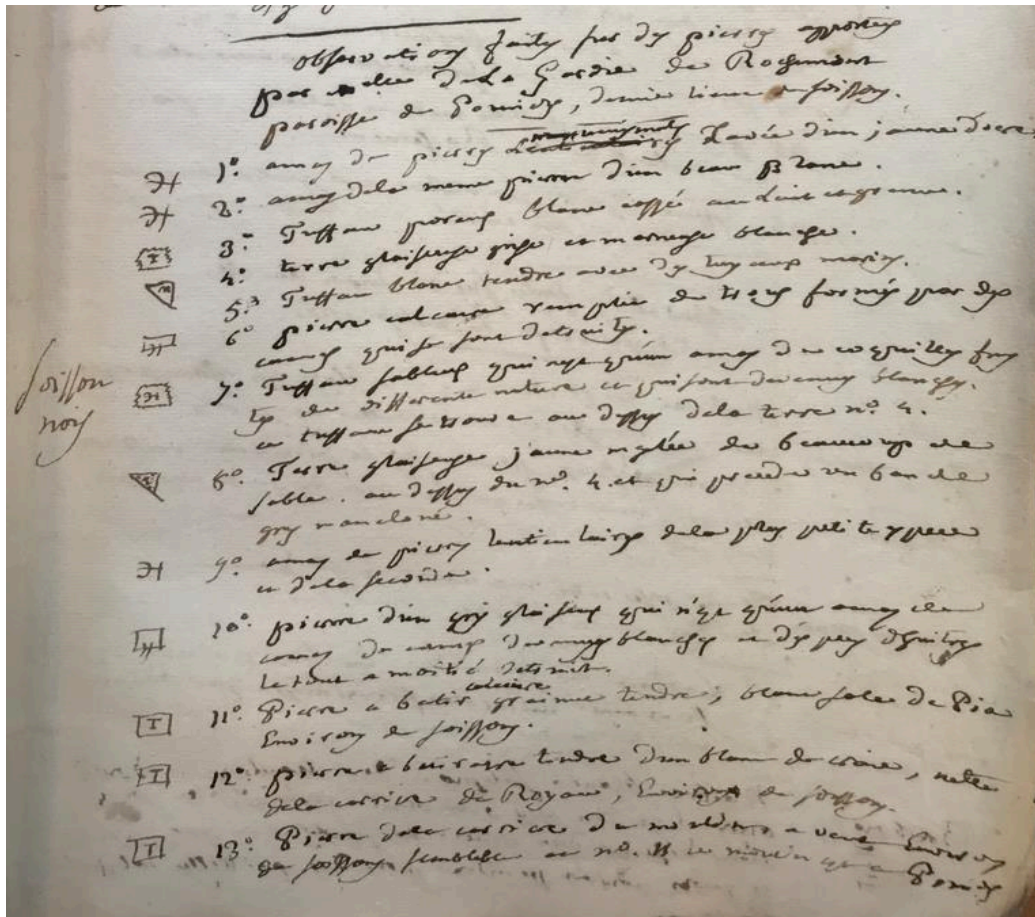 observations faites sur des pierres apportées
par melle de La Gardie de Rochemont
paroisse de Pomiers, demie lieue de soissons.
1º. amas de pierres d'un jaune d'ocre
2º. amas de la meme pierre d'un beau Blanc.
3º. Tuffau poreux blanc
4º. terre glaiseuse grise et marneuse blanche.
5º. Tuffau blanc tendre avec des tuyaux marins.
6º pierre calcaire remplie de trous formés par des
cames qui se sont detruites.
soisson
nois
7º. Tuffau sableux qui n'est qu'un amas de coquilles fos
de differente nature et qui sont devenues blanches.
ce tuffau se trouve au dessus de la terre nº. 4.
8º. Terre glaiseuse jaune melée de beaucoup de
sable. au dessus du nº. 4. et qui precede un banc de
grès
9º. amas de pierres lenticulaires de la plus petite espece
et de la seconde.
10º. pierre d'un gris glaiseux qui n'est qu'un amas de
cames devenues blanches et de d'huitres
le tout a moitié detruit.
11º. Pierre a batir calcaire tendre, blanc sale de
Environs de soissons.
12º. pierre a batir tendre d'un blanc de craie,
de la carriere de Environs de soissons.
13º. Pierre de la carriere de a vent Environs
de soissons semblable au nº. 11